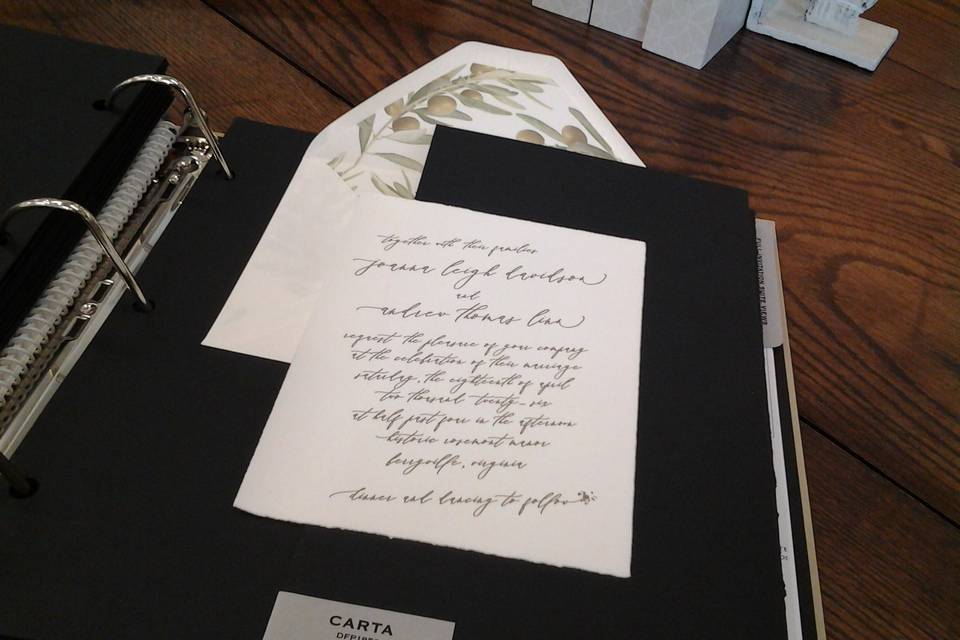 together with their families
joanna leigh davidson
and
andrew thomas linn
request the pleasure of your company
at the celebration of their marriage
saturday, the eighteenth of april
two thousand twenty-six
at half past four in the afternoon
historic rosemont manor
berryville, virginia
dinner and dancing to follow
CARTA